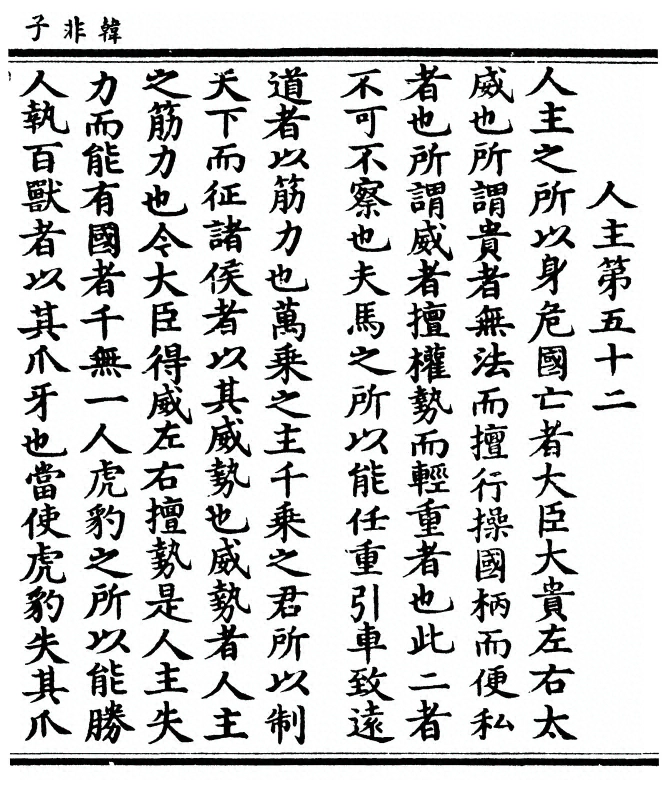 韓非子
人主第五十二
人主之所以身危國亡者大臣大貴左右太
威也所謂貴者無法而擅行操國柄而便私
者也所謂威者擅權勢而輕重者也此二者
不可不察也夫馬之所以能任重引車致遠
道者以筋力也萬乘之主千乘之君所以制
天下而征諸侯者以其威勢也威勢者人主
之筋力也令大臣得威左右擅勢是人主失
力而能有國者千無一人虎豹之所以能勝
人執百獸者以其爪牙也當使虎豹失其爪